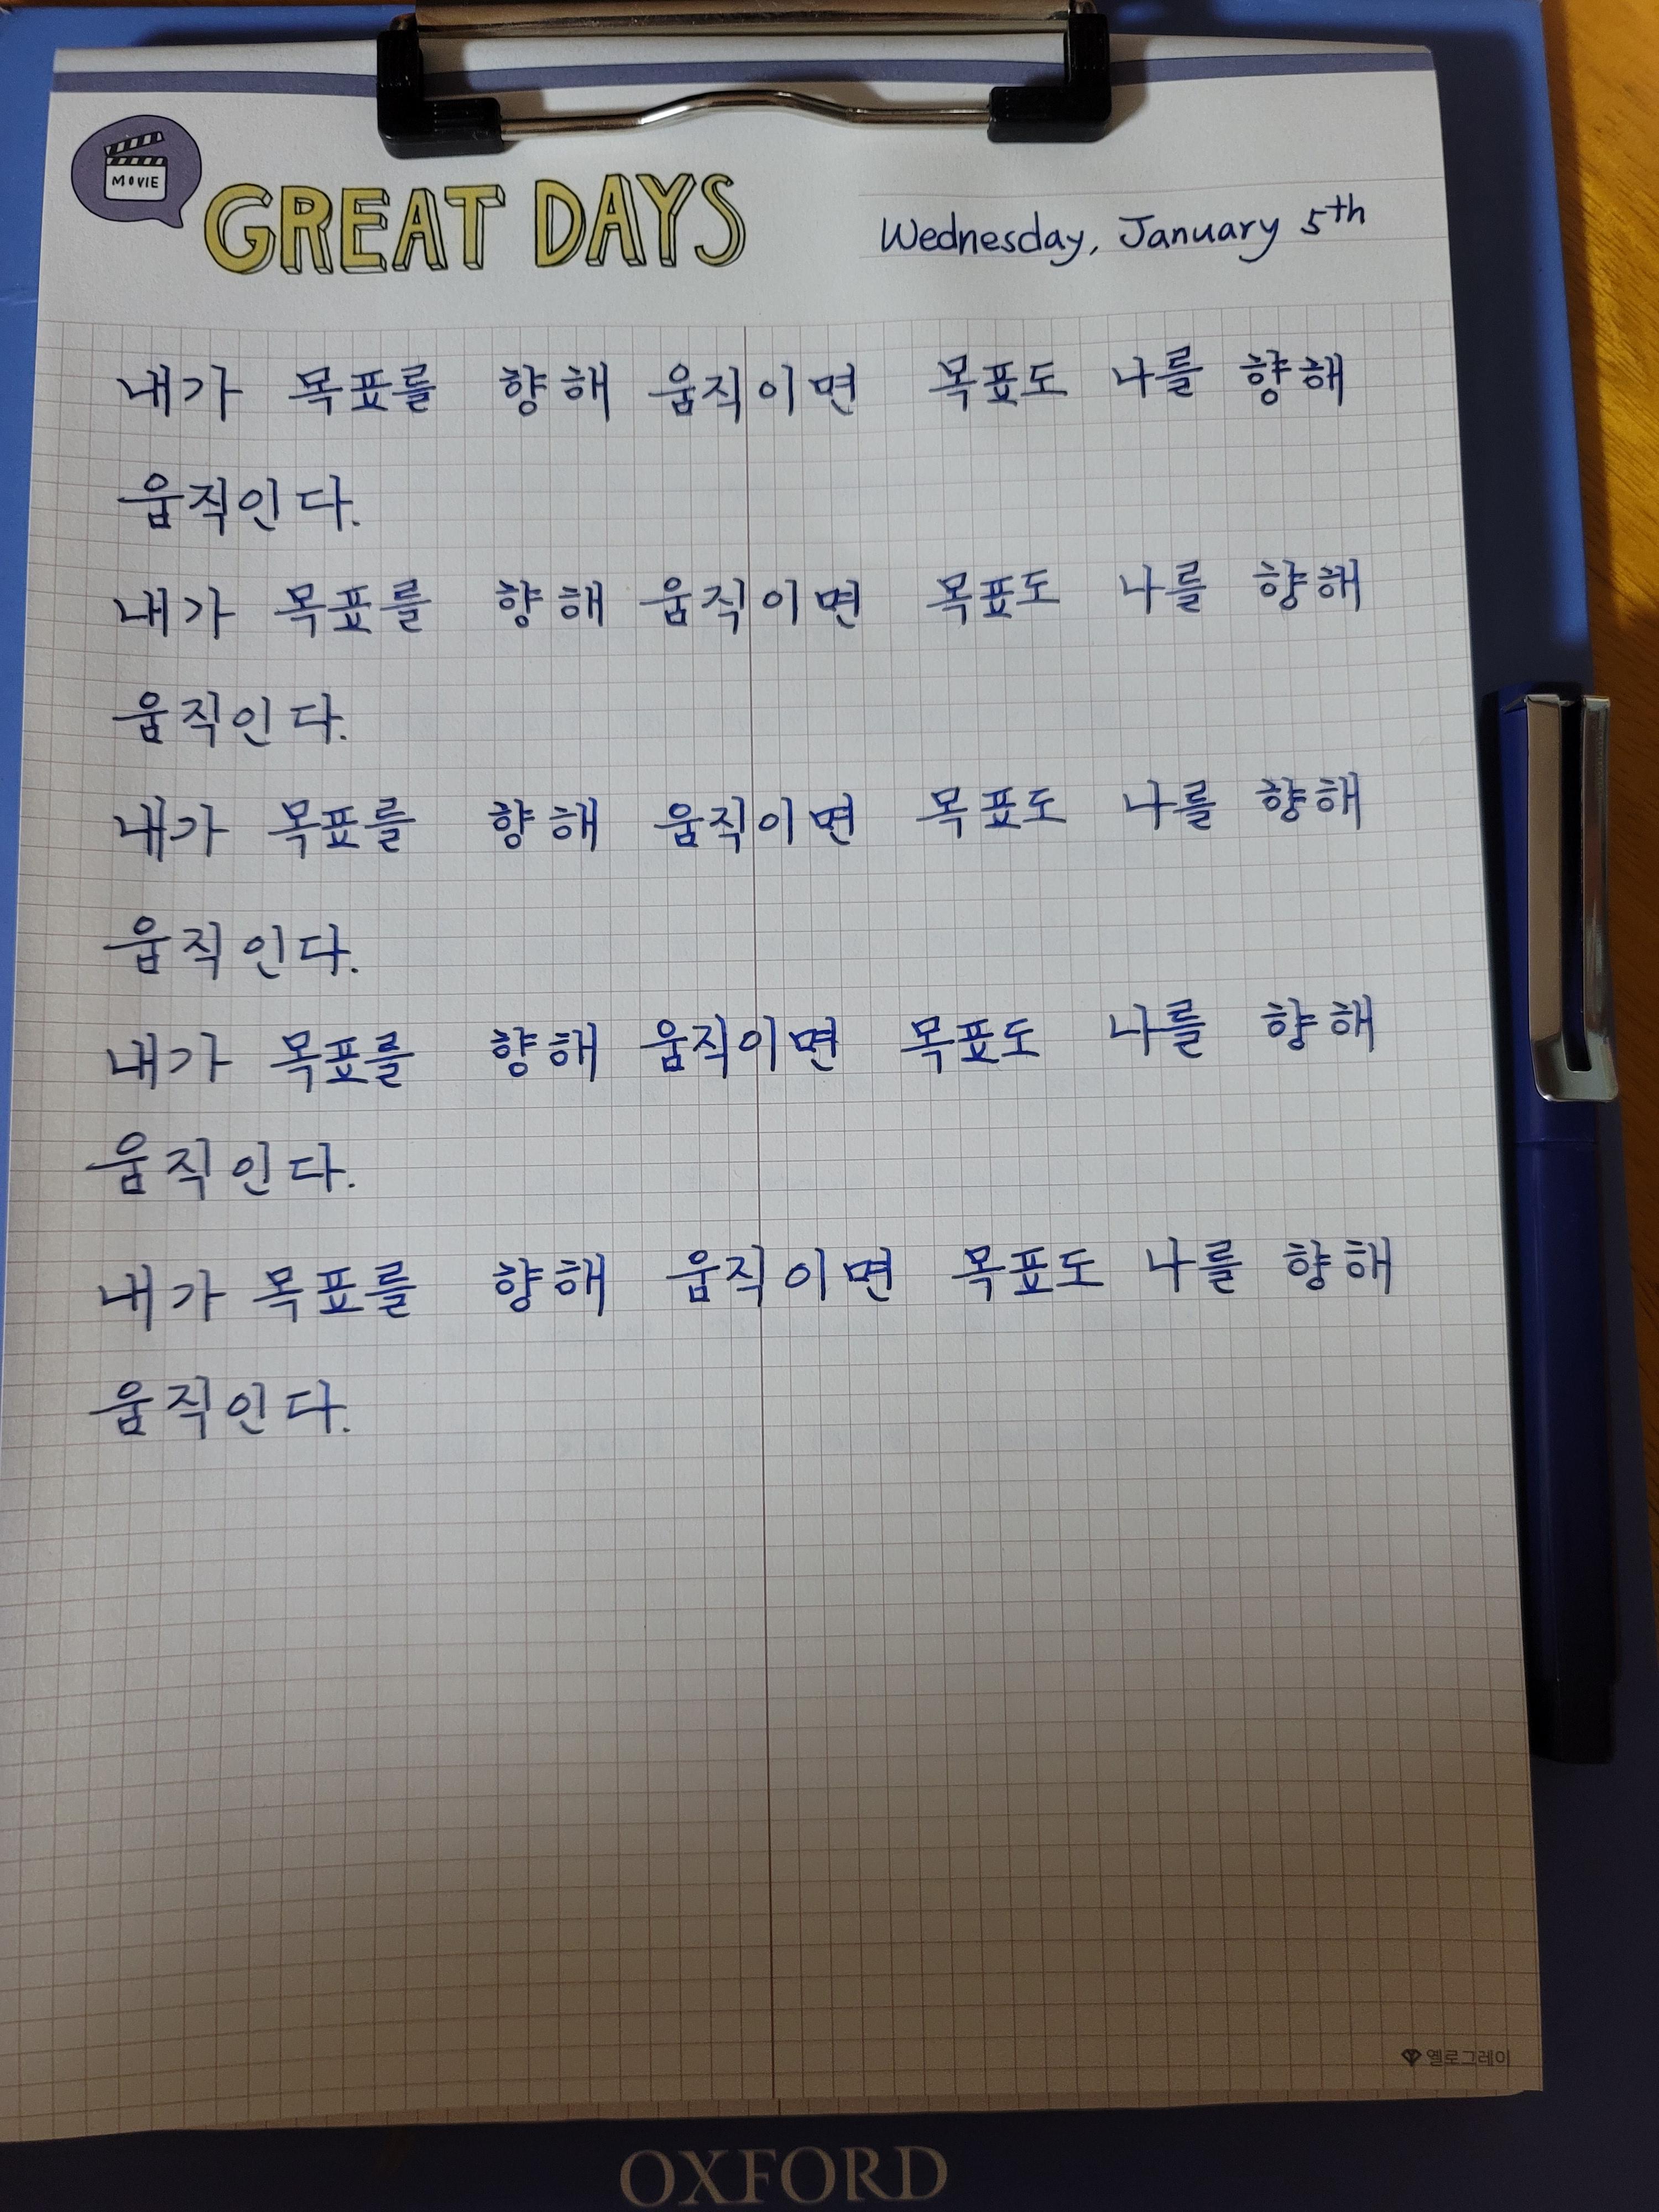 MOVIE
GREAT DAYS
Wednesday, January 5th
내가 목표를 향해 움직이면 목표도 나를 향해
움직인다.
내가 목표를 향해 움직이면 목표도 나를 향해
움직인다.
내가 목표를 향해 움직이면 목표도 나를 향해
움직인다.
내가 목표를 향해 움직이면 목표도 나를 향해
움직인다.
내가 목표를 향해 움직이면 목표도 나를 향해
움직인다.
옐로그레이
OXFORD